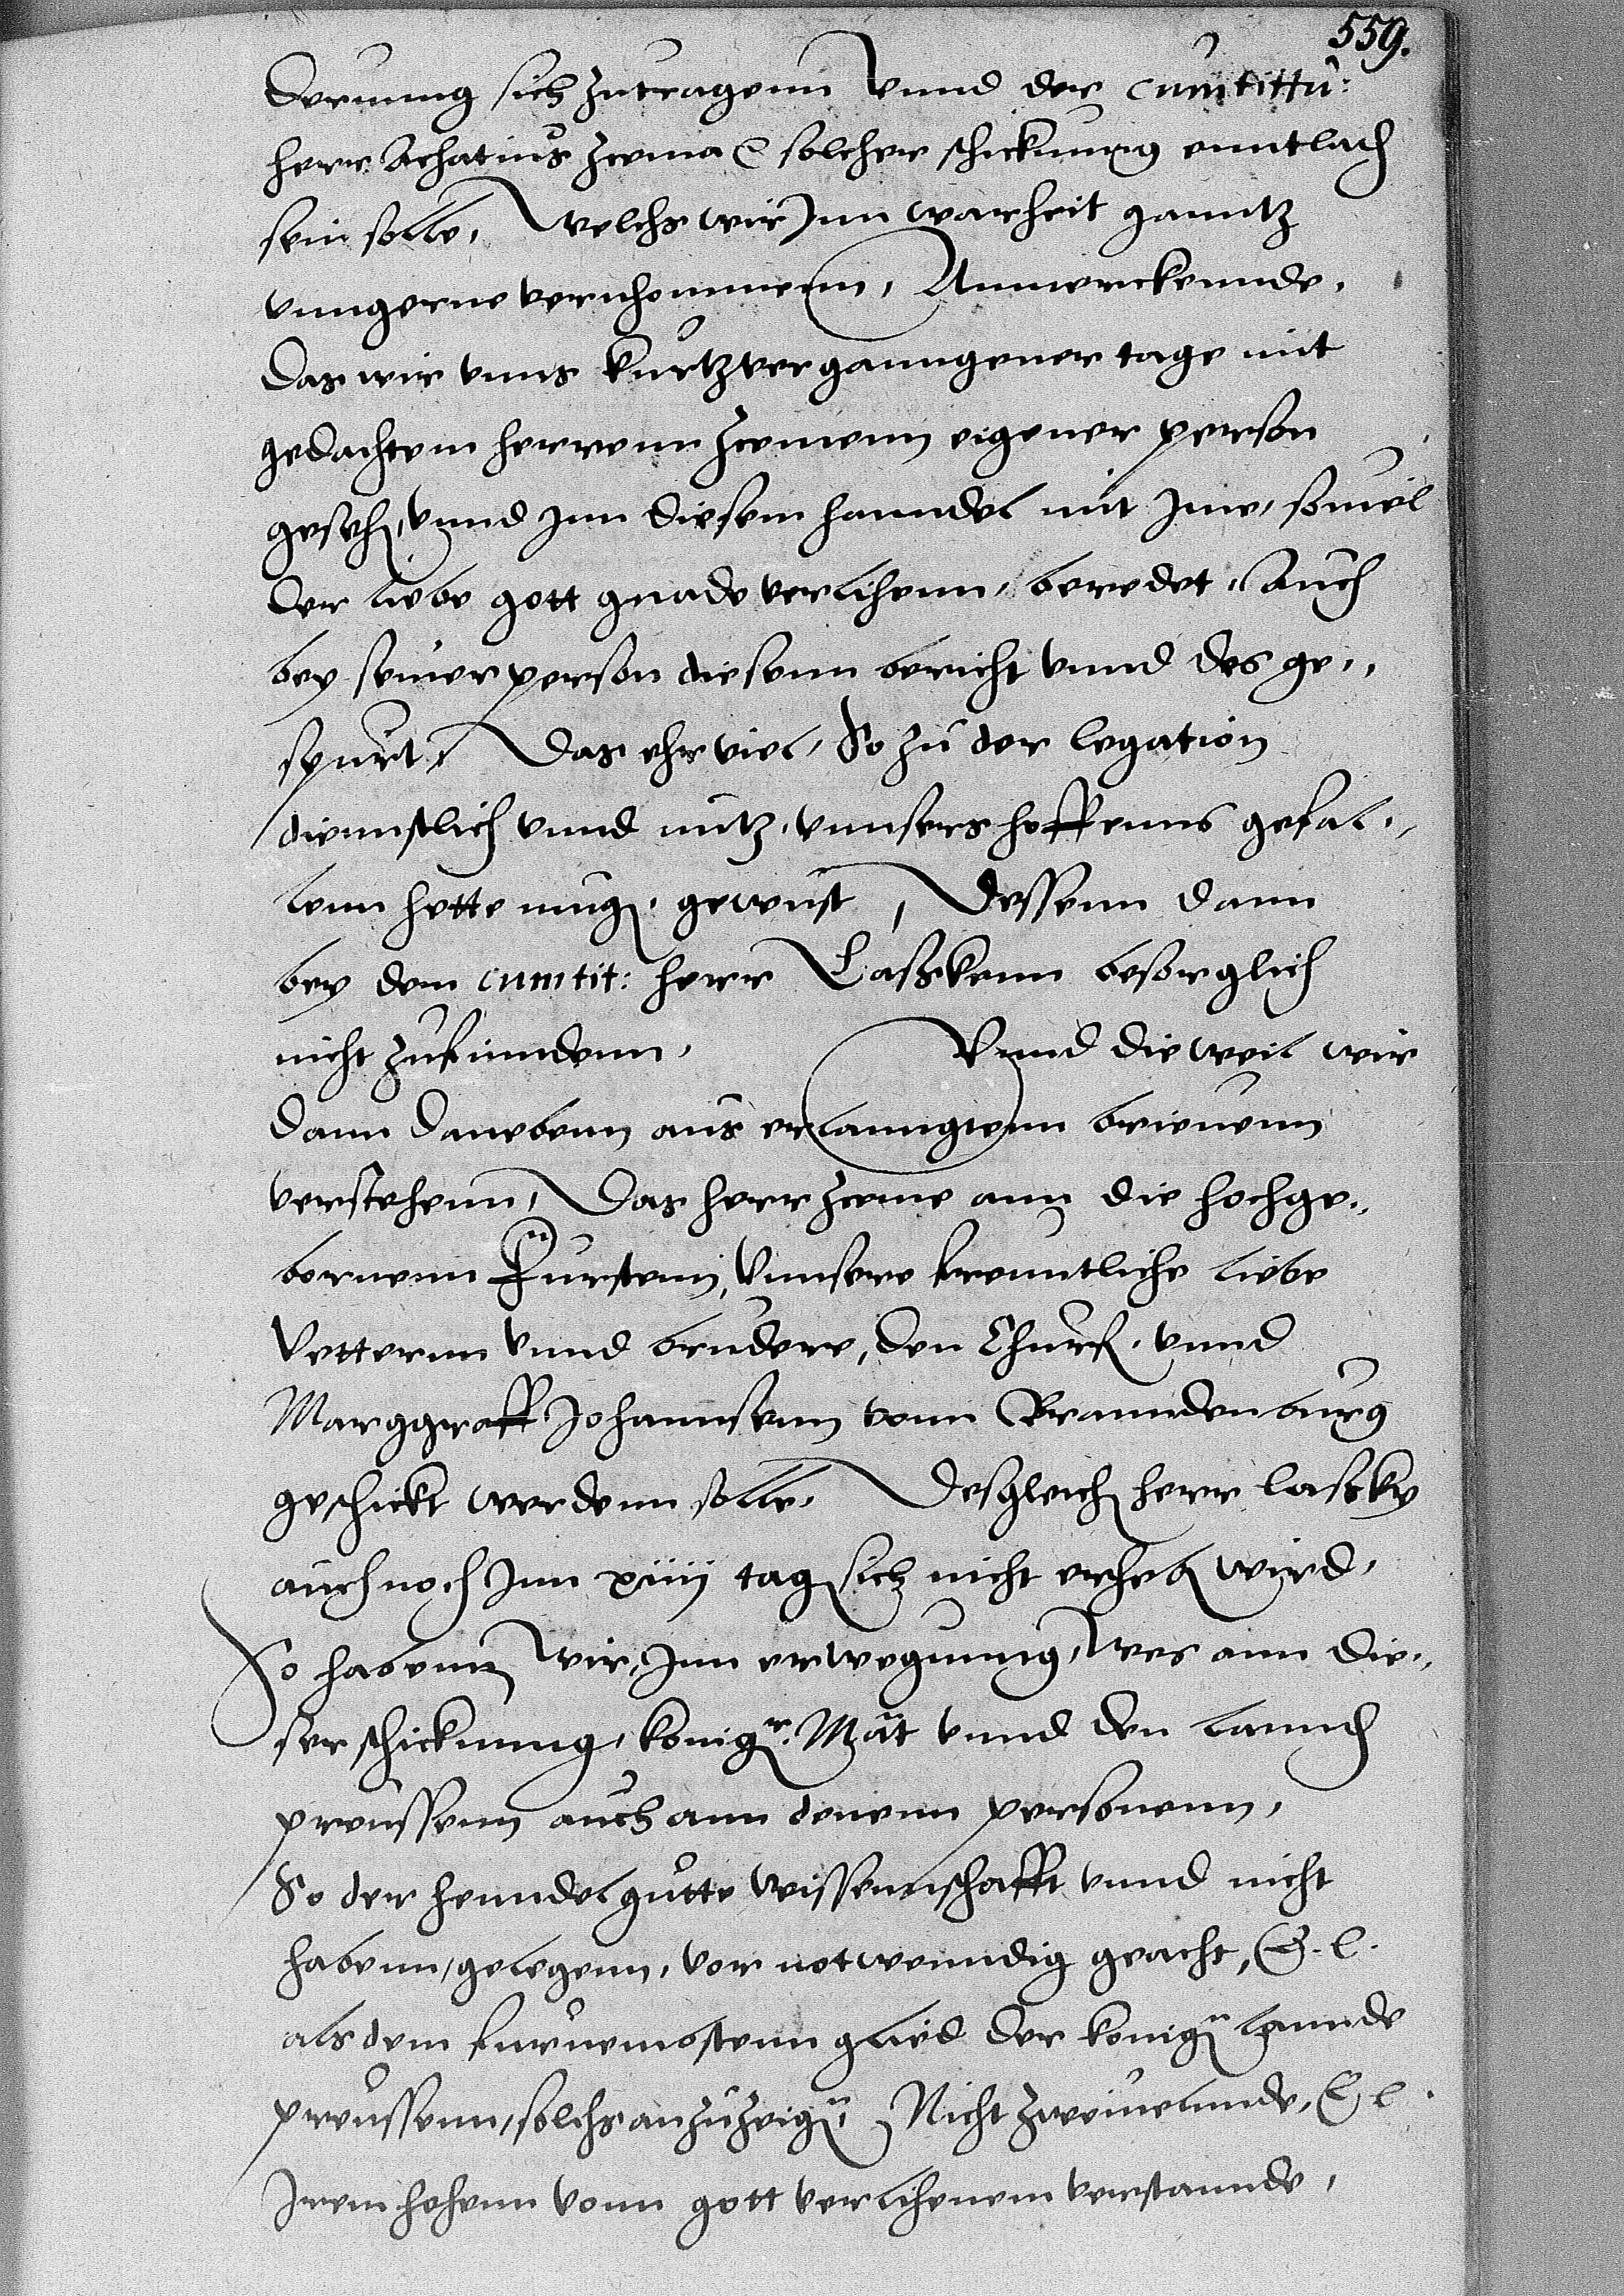 559.
derung sich zutragenn Vnnd der cum tittu:
herr Achatius Zcema &c solcher schickunng enntladen
sein solle, Welchs wir Inn warheit ganntz
vnngerne vernhommenn, Anmerckennde,
Das wir vnns kurtzverganngener tage mit
gedachtem herrenn Zcemenn eigener person
gesehen, Vnnd Inn diesem hanndel mit Ime, souiel
der liebe gott gnade verlihenn, beredet, Auch
bey seiner person diesenn bericht vnnd des ge„
spurt, Das ehr viel, So zu der legation
diennstlich vnnd nutz, vnnsers hoffenns gefal„
lenn hette mugen, gewust, Dessenn dann
bey dem cum tit: herr Laßkenn besorglich
nicht zufinndenn, Vnnd die weil wir
dann danebenn aus erlanngtenn brieuenn
verstehenn, Das herr Zceme ann die hochge„
bornenn Furstenn, Vnnsere freuntliche liebe
Vetternn Vnnd brudere, den Churf. vnnd
Marggraff Johannsenn vonn Branndenburg
geschickt werdenn solle, Desgleichen herr lasky
auch noch Inn xiiij tagen sich nicht erheben wird,
So habenn wir, Inn erwegunng, Wes ann die„
ser schickunng, konigr. Mat vnnd den lannden
preussenn auch ann denenn personenn,
So der henndel gutte wissennschafft vnnd nicht
habenn, gelegenn, vor notwenndig geacht, E. l.
als dem furnemostenn glied der konign lannde
preussenn, solchs anzuzeigen, Nicht zweiuelnnde, E l.
Irem hohenn vonn gott verlihenem verstannde,